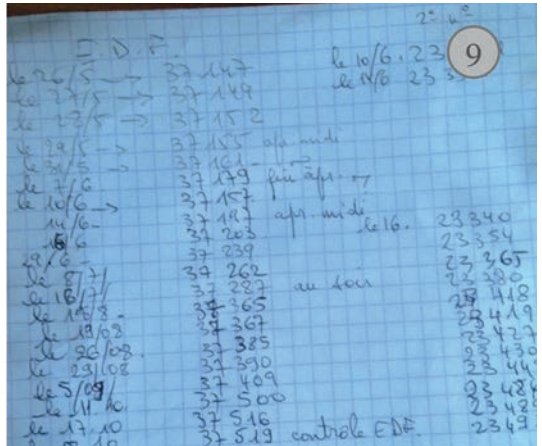 2e n°
E.D.F. le 10/6. 23
9
le 26/5 → 37 147 le 14/6 23 3
le 27/5 → 37 149
le 28/5 → 37 152
le 29/5 → 37 155 apr midi
le 31/5 → 37 161 -
le 7/6 37 179 fin apr.
le 10/6 → 37 157
14/6 - 37 197 apr. midi
16/6 37 203 le 16. 23340
29/6 - 37 239 23354
le 8/7/ 37 262 23 365
le 16/7/ 37 287 au soir 23 380
le 18/8 - 37 365 418
le 19/08 37 367 419
le 26/08. 37 385 23 427
le 29/08 37 390 23 430
le 5/09/ 37 409 23 44
le 11 10. 37 500 23 484
le 17.10 37 516 23 48
37 519 contrôle EDF. 23 49